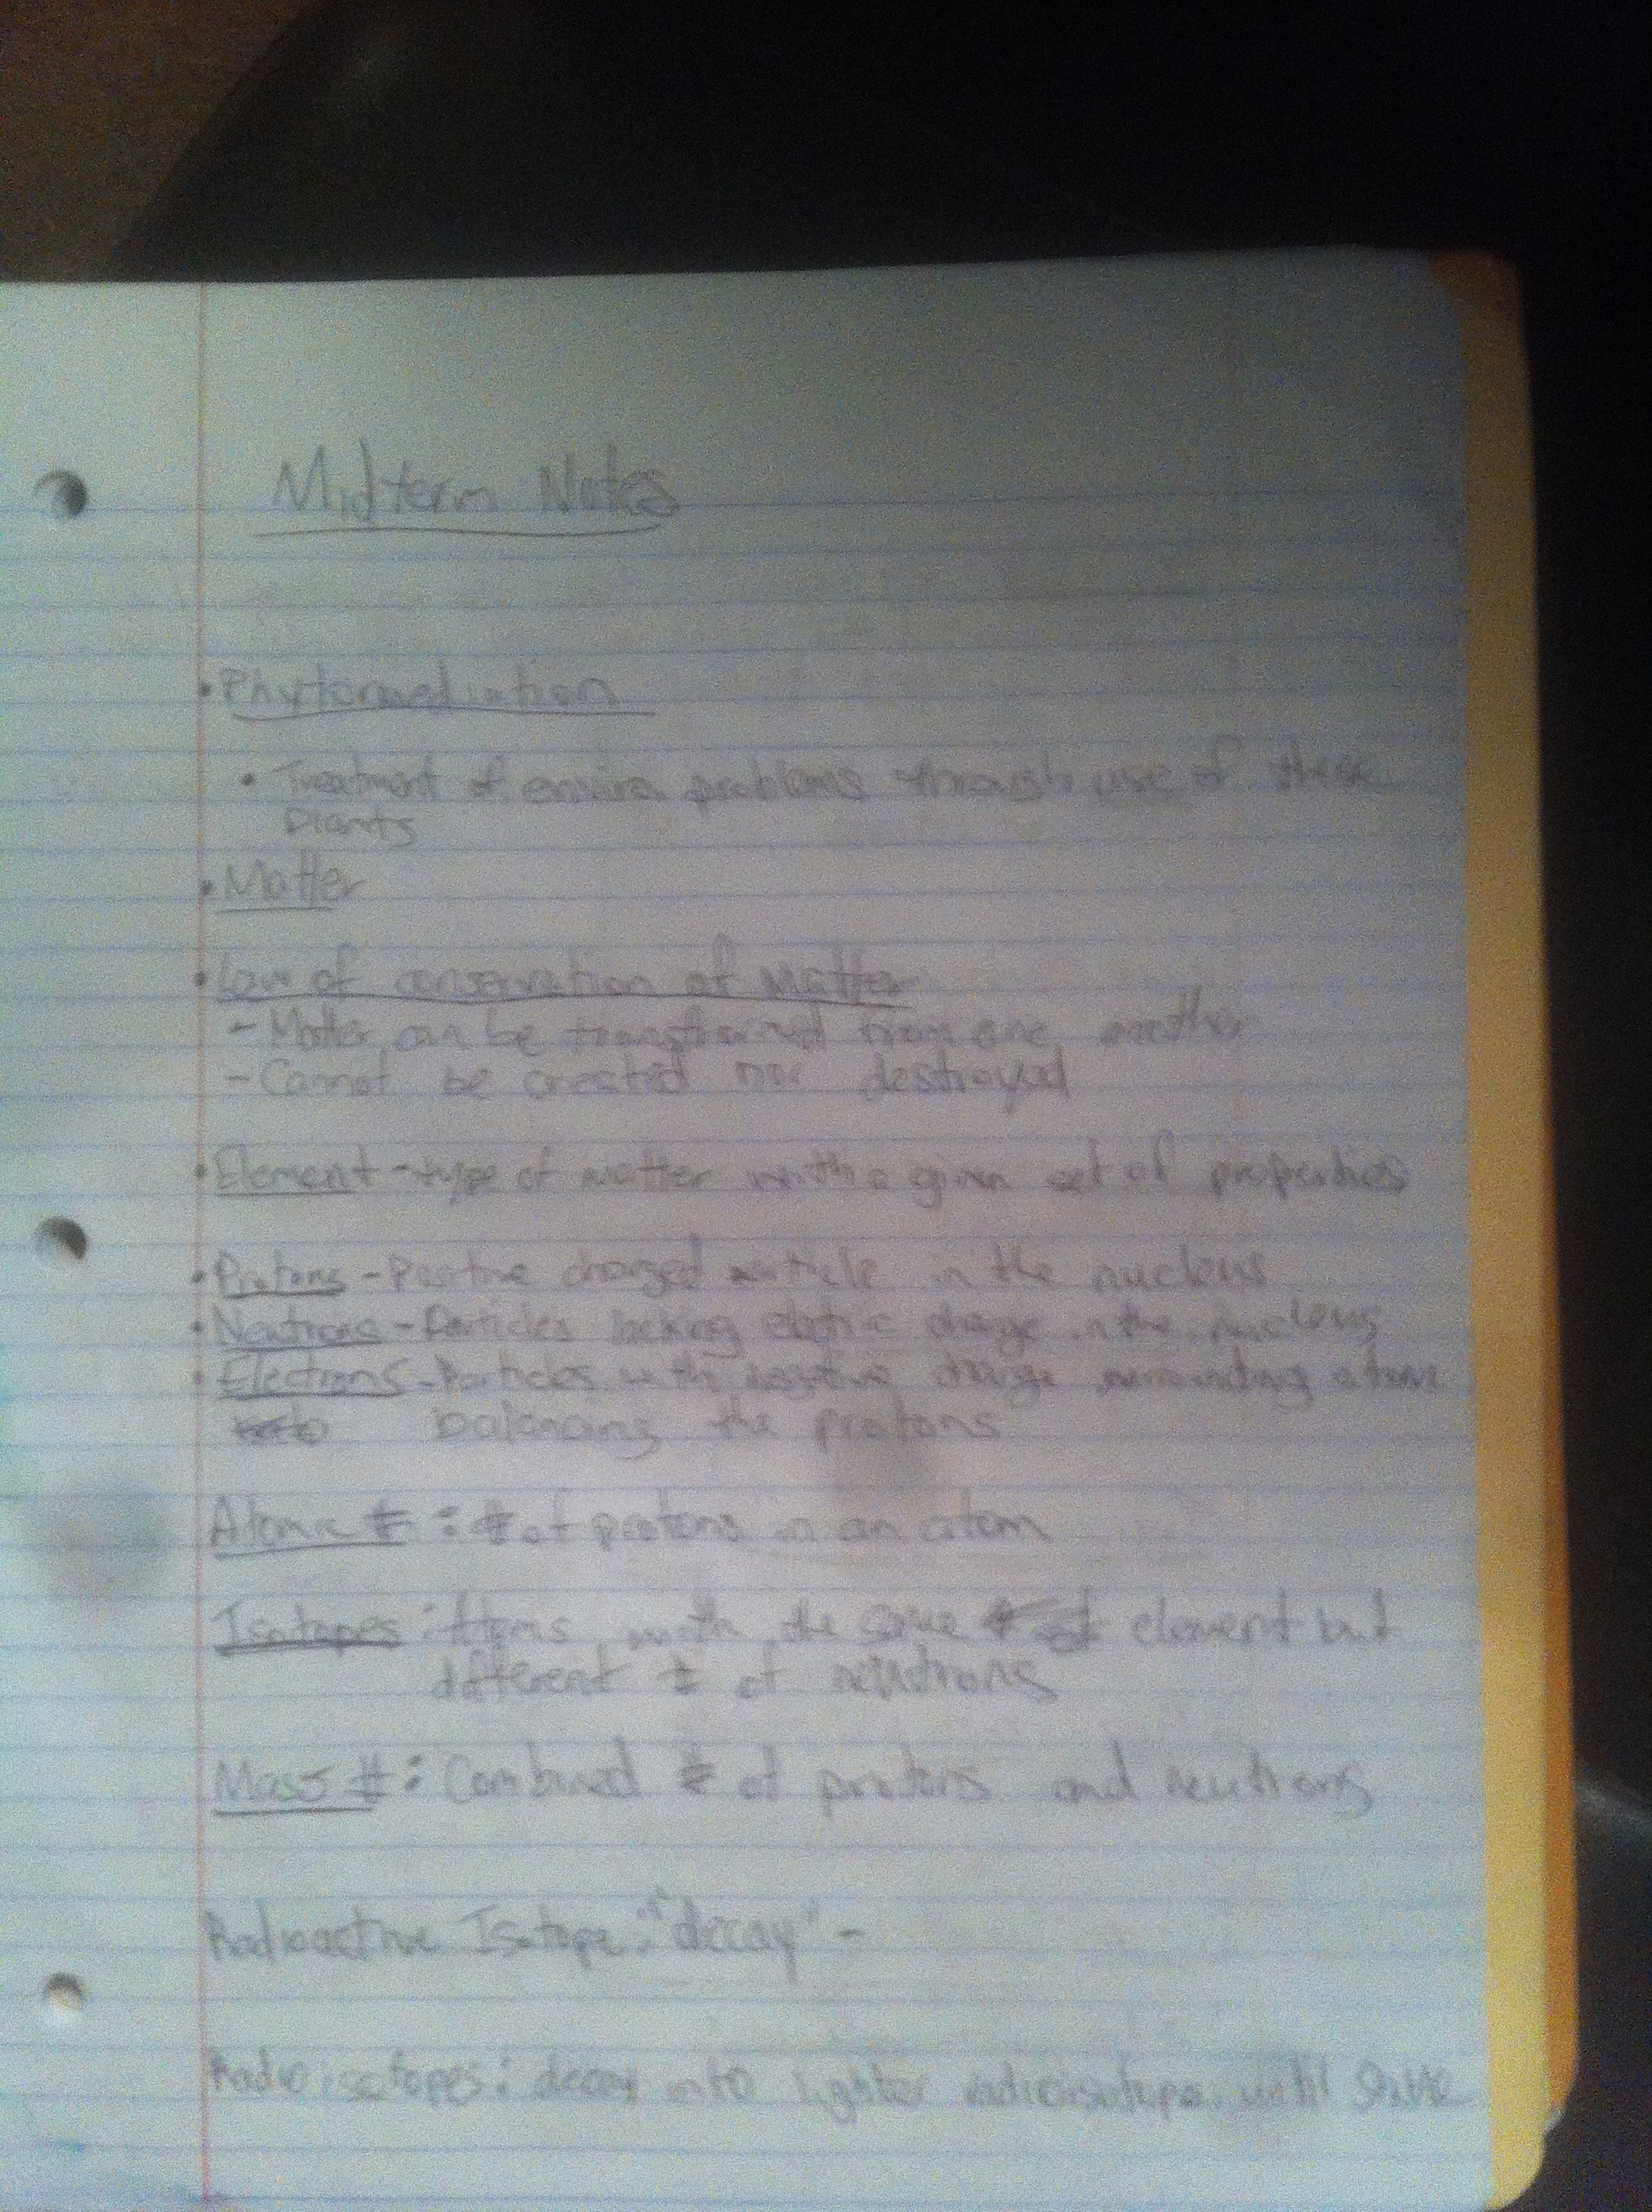 Midterm Notes
• Phytoremediation
• Treatment of enviro problems through use of these
Plants
• Matter
• Law of conservation of Matter
- Matter can be transformed from one another
- Cannot be created nor destroyed
• Element - type of matter with a given set of properties
• Protons - Positive charged particle in the nucleus
• Neutrons - Particles lacking electric charge in the nucleus
• Electrons - Particles with negative charge surrounding atom
balancing the protons
Atomic # : # of protons in an atom
Isotopes : Atoms with the same element but
different # of neutrons
Mass # : Combined # of protons and neutrons
Radioactive Isotope : "decay" -
Radioisotopes : decay into lighter radioisotopes until stable